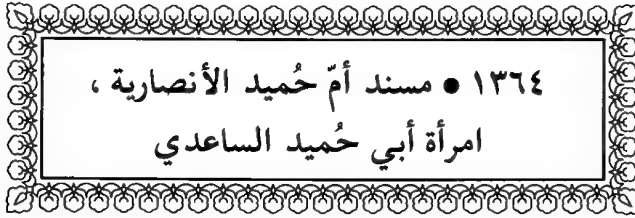 ١٣٦٤ • مسند أمّ حُميد الأنصارية ،
امرأة أبي حُميد الساعدي